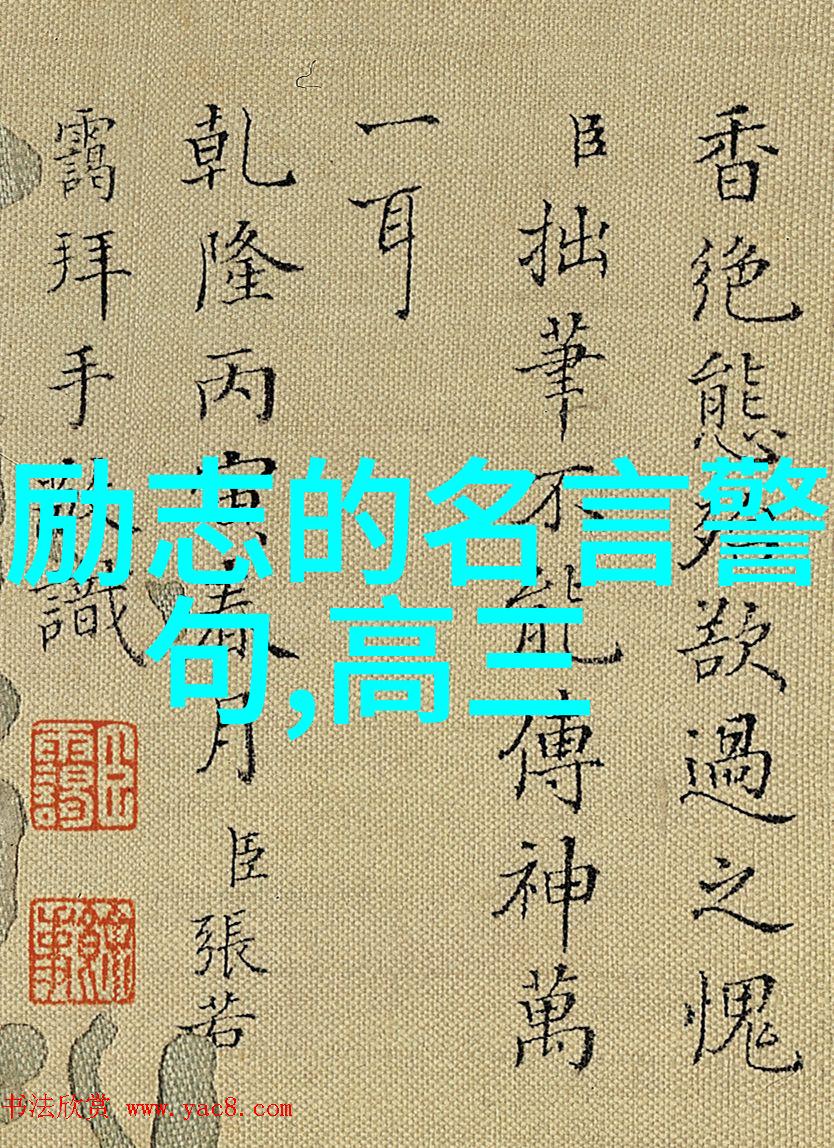 香絶態欲過之愧
臣拙筆不能傳神萬
一耳
乾隆丙寅春月臣張若
靄拜手敬識
励志的名言警
句,高三
书法欣赏 www.yac8.com